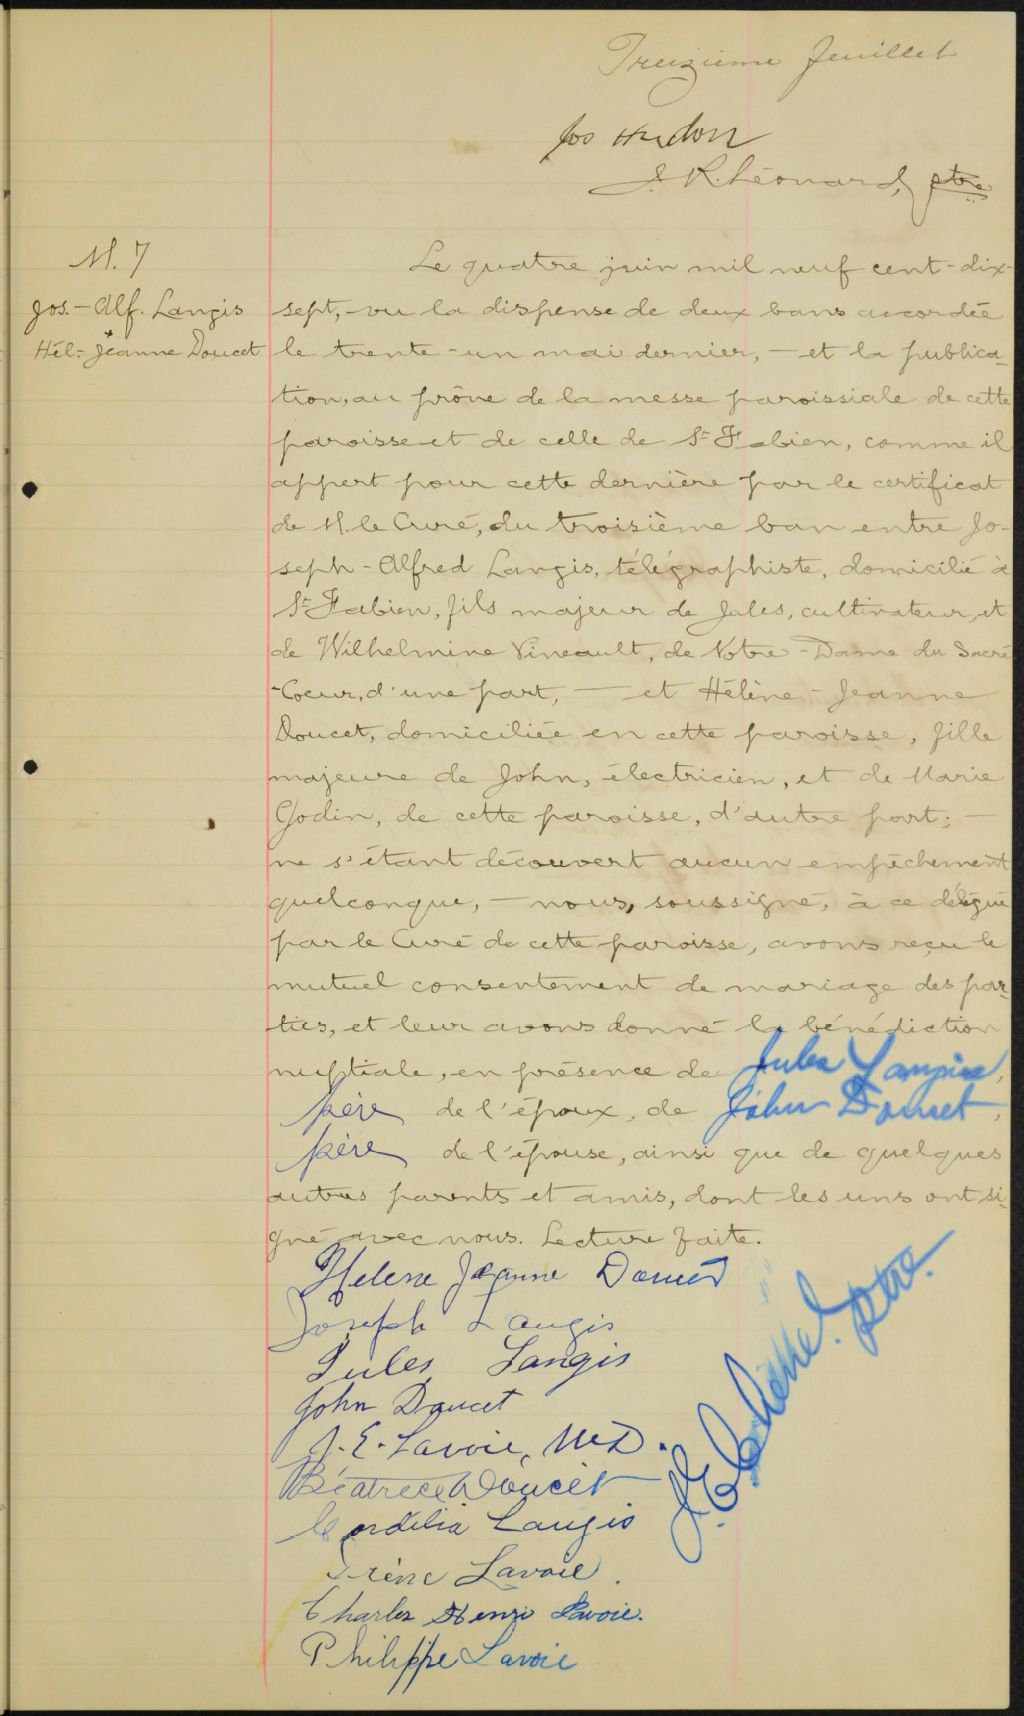 Treizième feuillet
Jos Hudon
J. R. Léonard, ptre
M. 7
Jos.-Alf. Langis
Hél.-Jeanne Doucet
Le quatre juin mil neuf cent-dix-
sept, vu la dispense de deux bans accordée
le trente-un mai dernier, - et la publica-
tion, au prône de la messe paroissiale de cette
paroisse et de celle de St-Fabien, comme il
appert pour cette dernière par le certificat
de M. le Curé, du troisième ban entre Jo-
seph-Alfred Langis, télégraphiste, domicilié à
St-Fabien, fils majeur de Jules, cultivateur, et
de Wilhelmine Vineault, de Notre-Dame du Sacré
-Coeur, d'une part, - et Hélène-Jeanne
Doucet, domiciliée en cette paroisse, fille
majeure de John, électricien, et de Marie
Godin, de cette paroisse, d'autre part; -
ne s'étant découvert aucun empêchement
quelconque, - nous, soussigné, à ce délégué
par le Curé de cette paroisse, avons reçu le
mutuel consentement de mariage des par-
ties, et leur avons donné la bénédiction
nuptiale, en présence de Jules Langis,
père de l'époux, de John Doucet,
père de l'épouse, ainsi que de quelques
autres parents et amis, dont les uns ont si-
gné avec nous. Lecture faite.
Helene Jeanne Doucet
Joseph Langis
Jules Langis
John Doucet
J. E. Lavoie, M.D.
Béatrice Doucet
Cordélia Langis
Irène Lavoie.
Charles Henri Lavoie.
Philippe Lavoie
ptre.